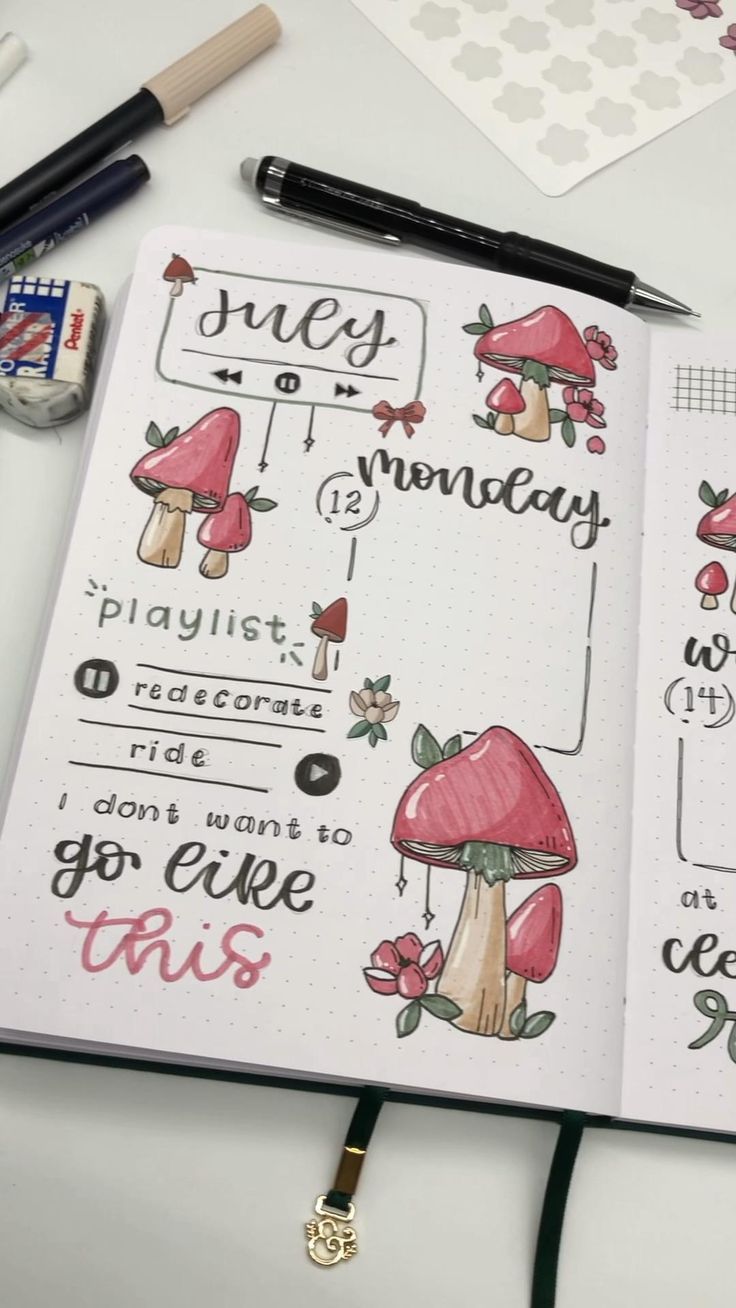 July
monday
12
playlist
redecorate
ride
i dont want to
go like
this
Pentel
(14)
at